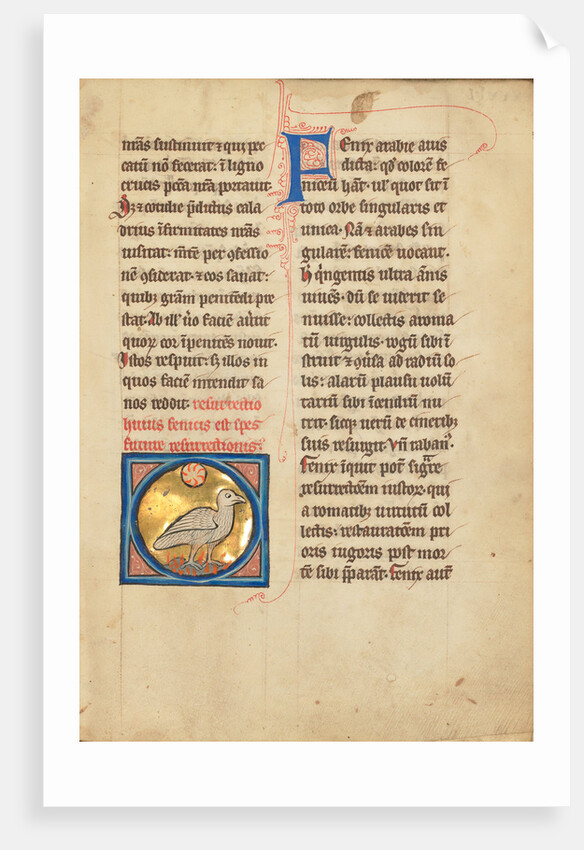 nr̃as sustinuit ⁊ qui pec
catũ non fecerat: ĩ ligno
crucis pccã nr̃a portauit.
⁊ cotidie p̃dictus cala
drius ĩfirmitates nr̃as
uisitat: mẽte per ꝯfessio
nẽ ꝯsiderat: ⁊ eos sanat:
quibꝫ gr̃am penitẽdi pre
stat. Ab ill' ũo faciẽ au̾tit
quoꝝ cor ĩpenitẽs nouit.
Istos respuit: sꝫ illos in
quos faciẽ intendit sa
nos reddit. resurrectio
huius fenicis est spes
future resurrectionis.
Fenix arabie auis
dicta: qd̾ colorẽ fe
niceũ hãt. ul' quot sit ĩ
toto orbe singularis et
unica. Nã ⁊ arabes sin
gularẽ: fenicẽ uocant.
h̾ q̾ngentis ultra ãnis
uiuẽs. dũ se uiderit se
nuisse: collectis aroma
tũ uirgulis. rogũ sibi ĩ
struit ⁊ ꝯu̾sa ad radiũ so
lis: alarũ plausu uolũ
tariũ sibi ĩcẽdiũ nu
trit. sicqꝫ uerũ de cineribꝫ
suis resurgit. Vñ raban'.
Fenix ĩquit pot̃ sig̃re
resurrectõem iustoꝝ. qui
aromatibꝫ uirtutũ col
lectis. restauratõem pri
oris uigoris post mor
tẽ sibi p̃parãt. Fenix aut̃